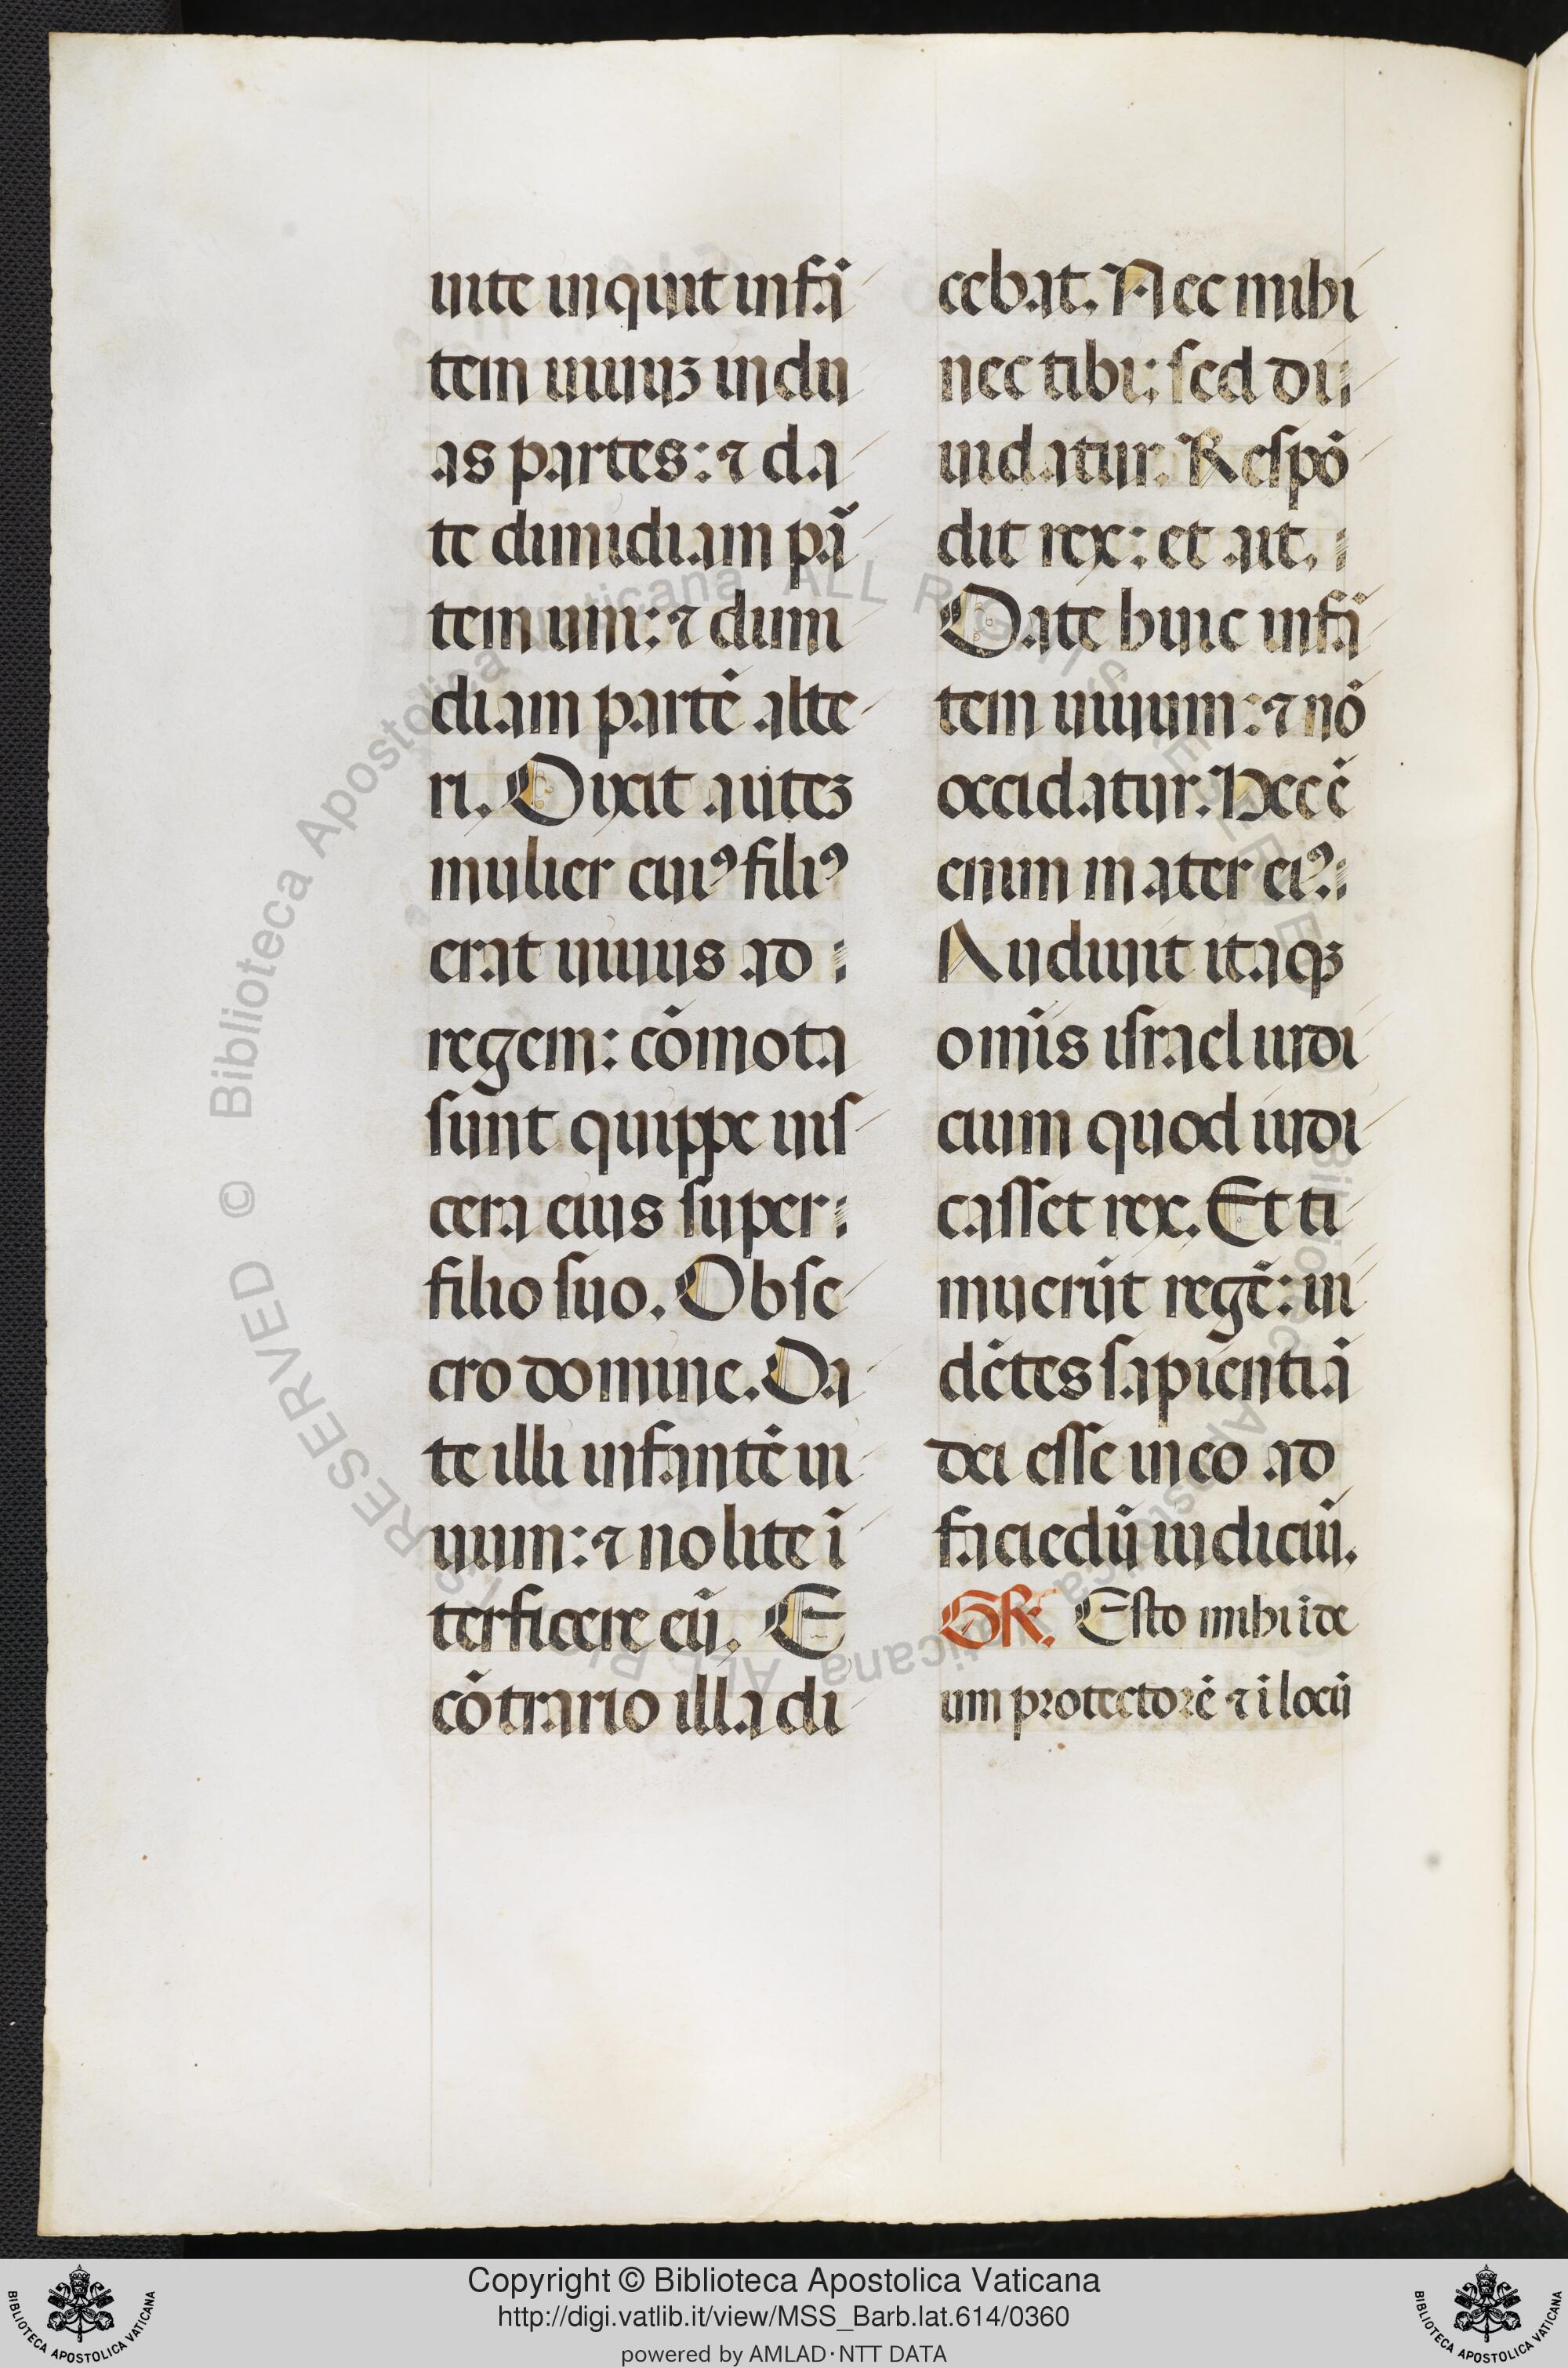 uite inquit infã
tem uiuuȝ in du
as partes: ⁊ da
te dimidiam pã
tem uni: ⁊ dimi
diam partẽ alte
ri. Dixit auteȝ
mulier cuiꝰ filiꝰ
erat uiuus ad
regem: cõmota
sunt quippe uis
cera eius super
filio suo. Obse
cro domine. Da
te illi infantẽ ui
uum: ⁊ nolite ĩ
terficere eũ. E
cõtrario illa di
cebat. Nec mihi
nec tibi: sed di
uidatur. Respõ
dit rex: et ait.
Date huic infã
tem uiuum: ⁊ nõ
occidatur. Hec ẽ
enim mater eiꝰ.
Audiuit itaqȝ
omĩs israel iudi
cium quod iudi
casset rex. Et ti
muerũt regẽ: ui
dẽtes sapientiã
dei esse in eo ad
faciẽdũ iudiciũ.
GR. Esto mihi ĩ de
um protectorẽ ⁊ ĩ locũ
© Biblioteca Apostolica Vaticana ALL RIGHTS RESERVED
Copyright © Biblioteca Apostolica Vaticana
http://digi.vatlib.it/view/MSS_Barb.lat.614/0360
powered by AMLAD·NTT DATA
BIBLIOTECA APOSTOLICA VATICANA
BIBLIOTECA APOSTOLICA VATICANA